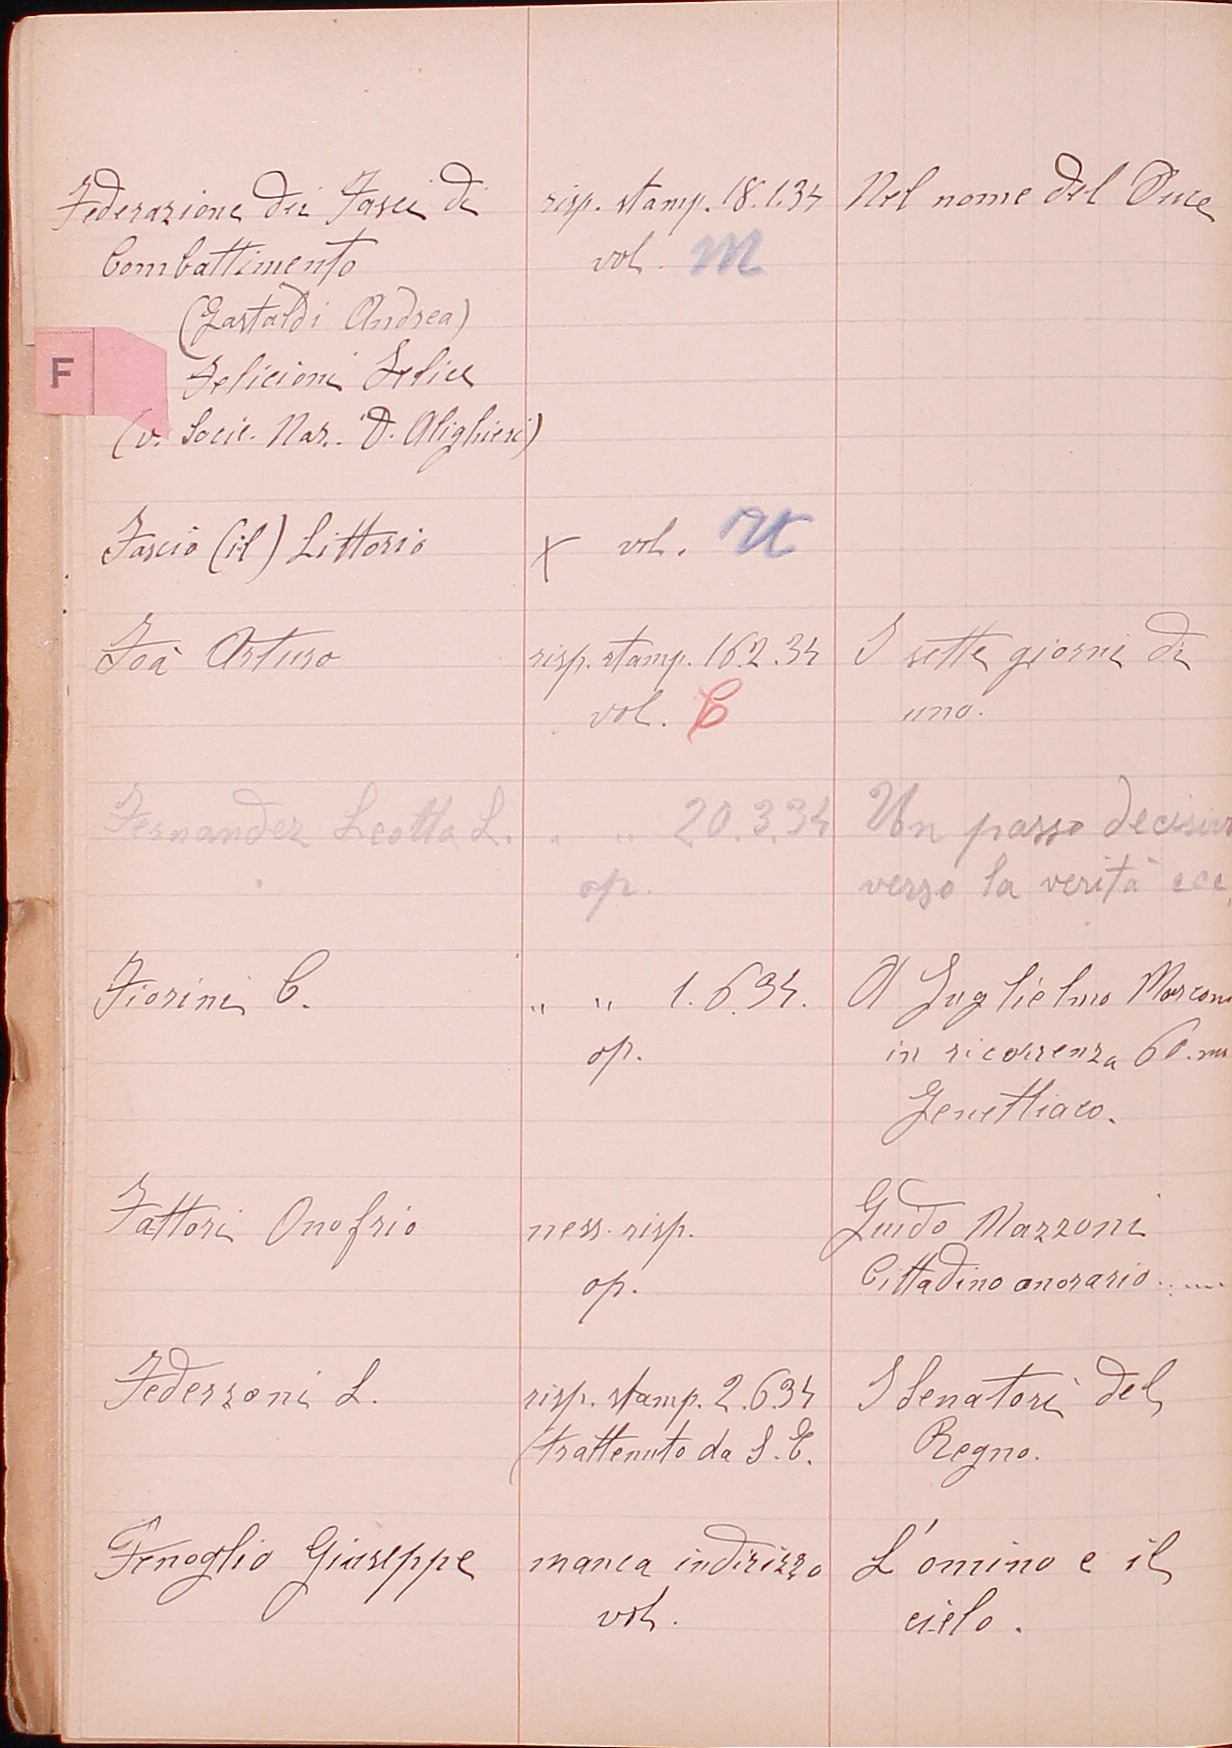 Federazione dei Fasci di risp. stamp. 18.1.34 Nel nome del Duce
Combattimento vol. M
(Gastaldi Andrea)
F
Felicioni Felice
(v. Socie. Naz. D. Alighieri)
Fascio (il) Littorio x vol. U
Foà Arturo risp. stamp. 16.2.34 I sette giorni di
vol. C uno.
Fernandez Leotta L. " " 20.3.34 Un passo decisivo
op. verso la verità ecc.
Fiorini C. " " 1.6.34. A Guglielmo Marconi
op. in ricorrenza 60.mo
Genetliaco.
Fattori Onofrio ness. risp. Guido Mazzoni
op. Cittadino onorario.....
Federzoni L. risp. stamp. 2.6.34 I Senatori del
(trattenuto da S.E. Regno.
Fenoglio Giuseppe manca indirizzo L'omino e il
vol. cielo.